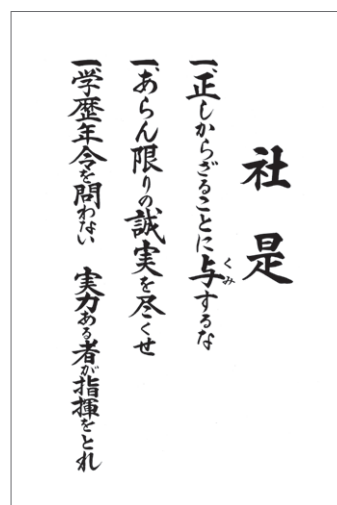 社是
一、正しからざることに与するな
くみ
一、あらん限りの誠実を尽くせ
一、学歴年令を問わない　実力ある者が指揮をとれ